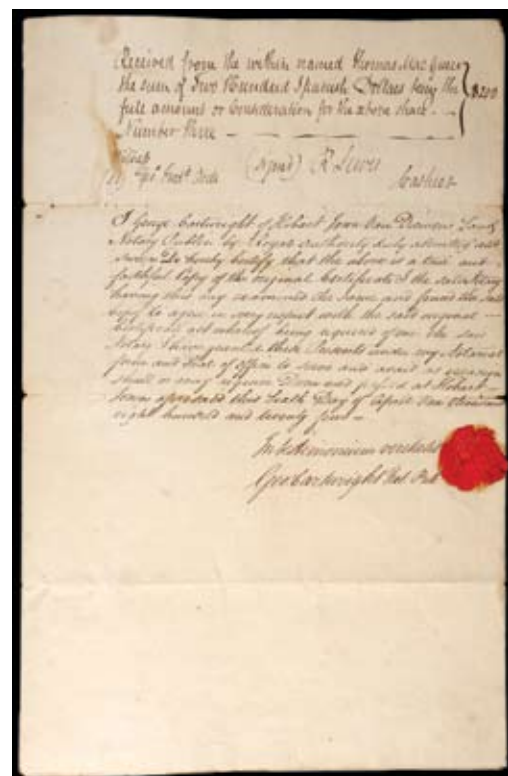 Received from the within named Thomas Macqueen
the sum of Two Hundred Spanish Dollars being the
full amount or Consideration for the above share $200
Number three
Witness
(signed) R Lewis
Cashier
I George Cartwright of Hobart Town Van Diemens Land
Notary Public by Royal Authority duly admitted and
sworn Do hereby Certify that the above is a true and
faithful Copy of the original Certificate I the said Notary
having this day examined the same and found the said
Copy to agree in every respect with the said original
Certificate act whereof being required of me the said
Notary I have granted these Presents under my Notarial
form and Seal of office to serve and avail as occasion
shall or may require Done and passed at Hobart
Town aforesaid this Sixth Day of April One thousand
eight hundred and twenty four
In testimonium veritatis
Geo Cartwright Not Pub